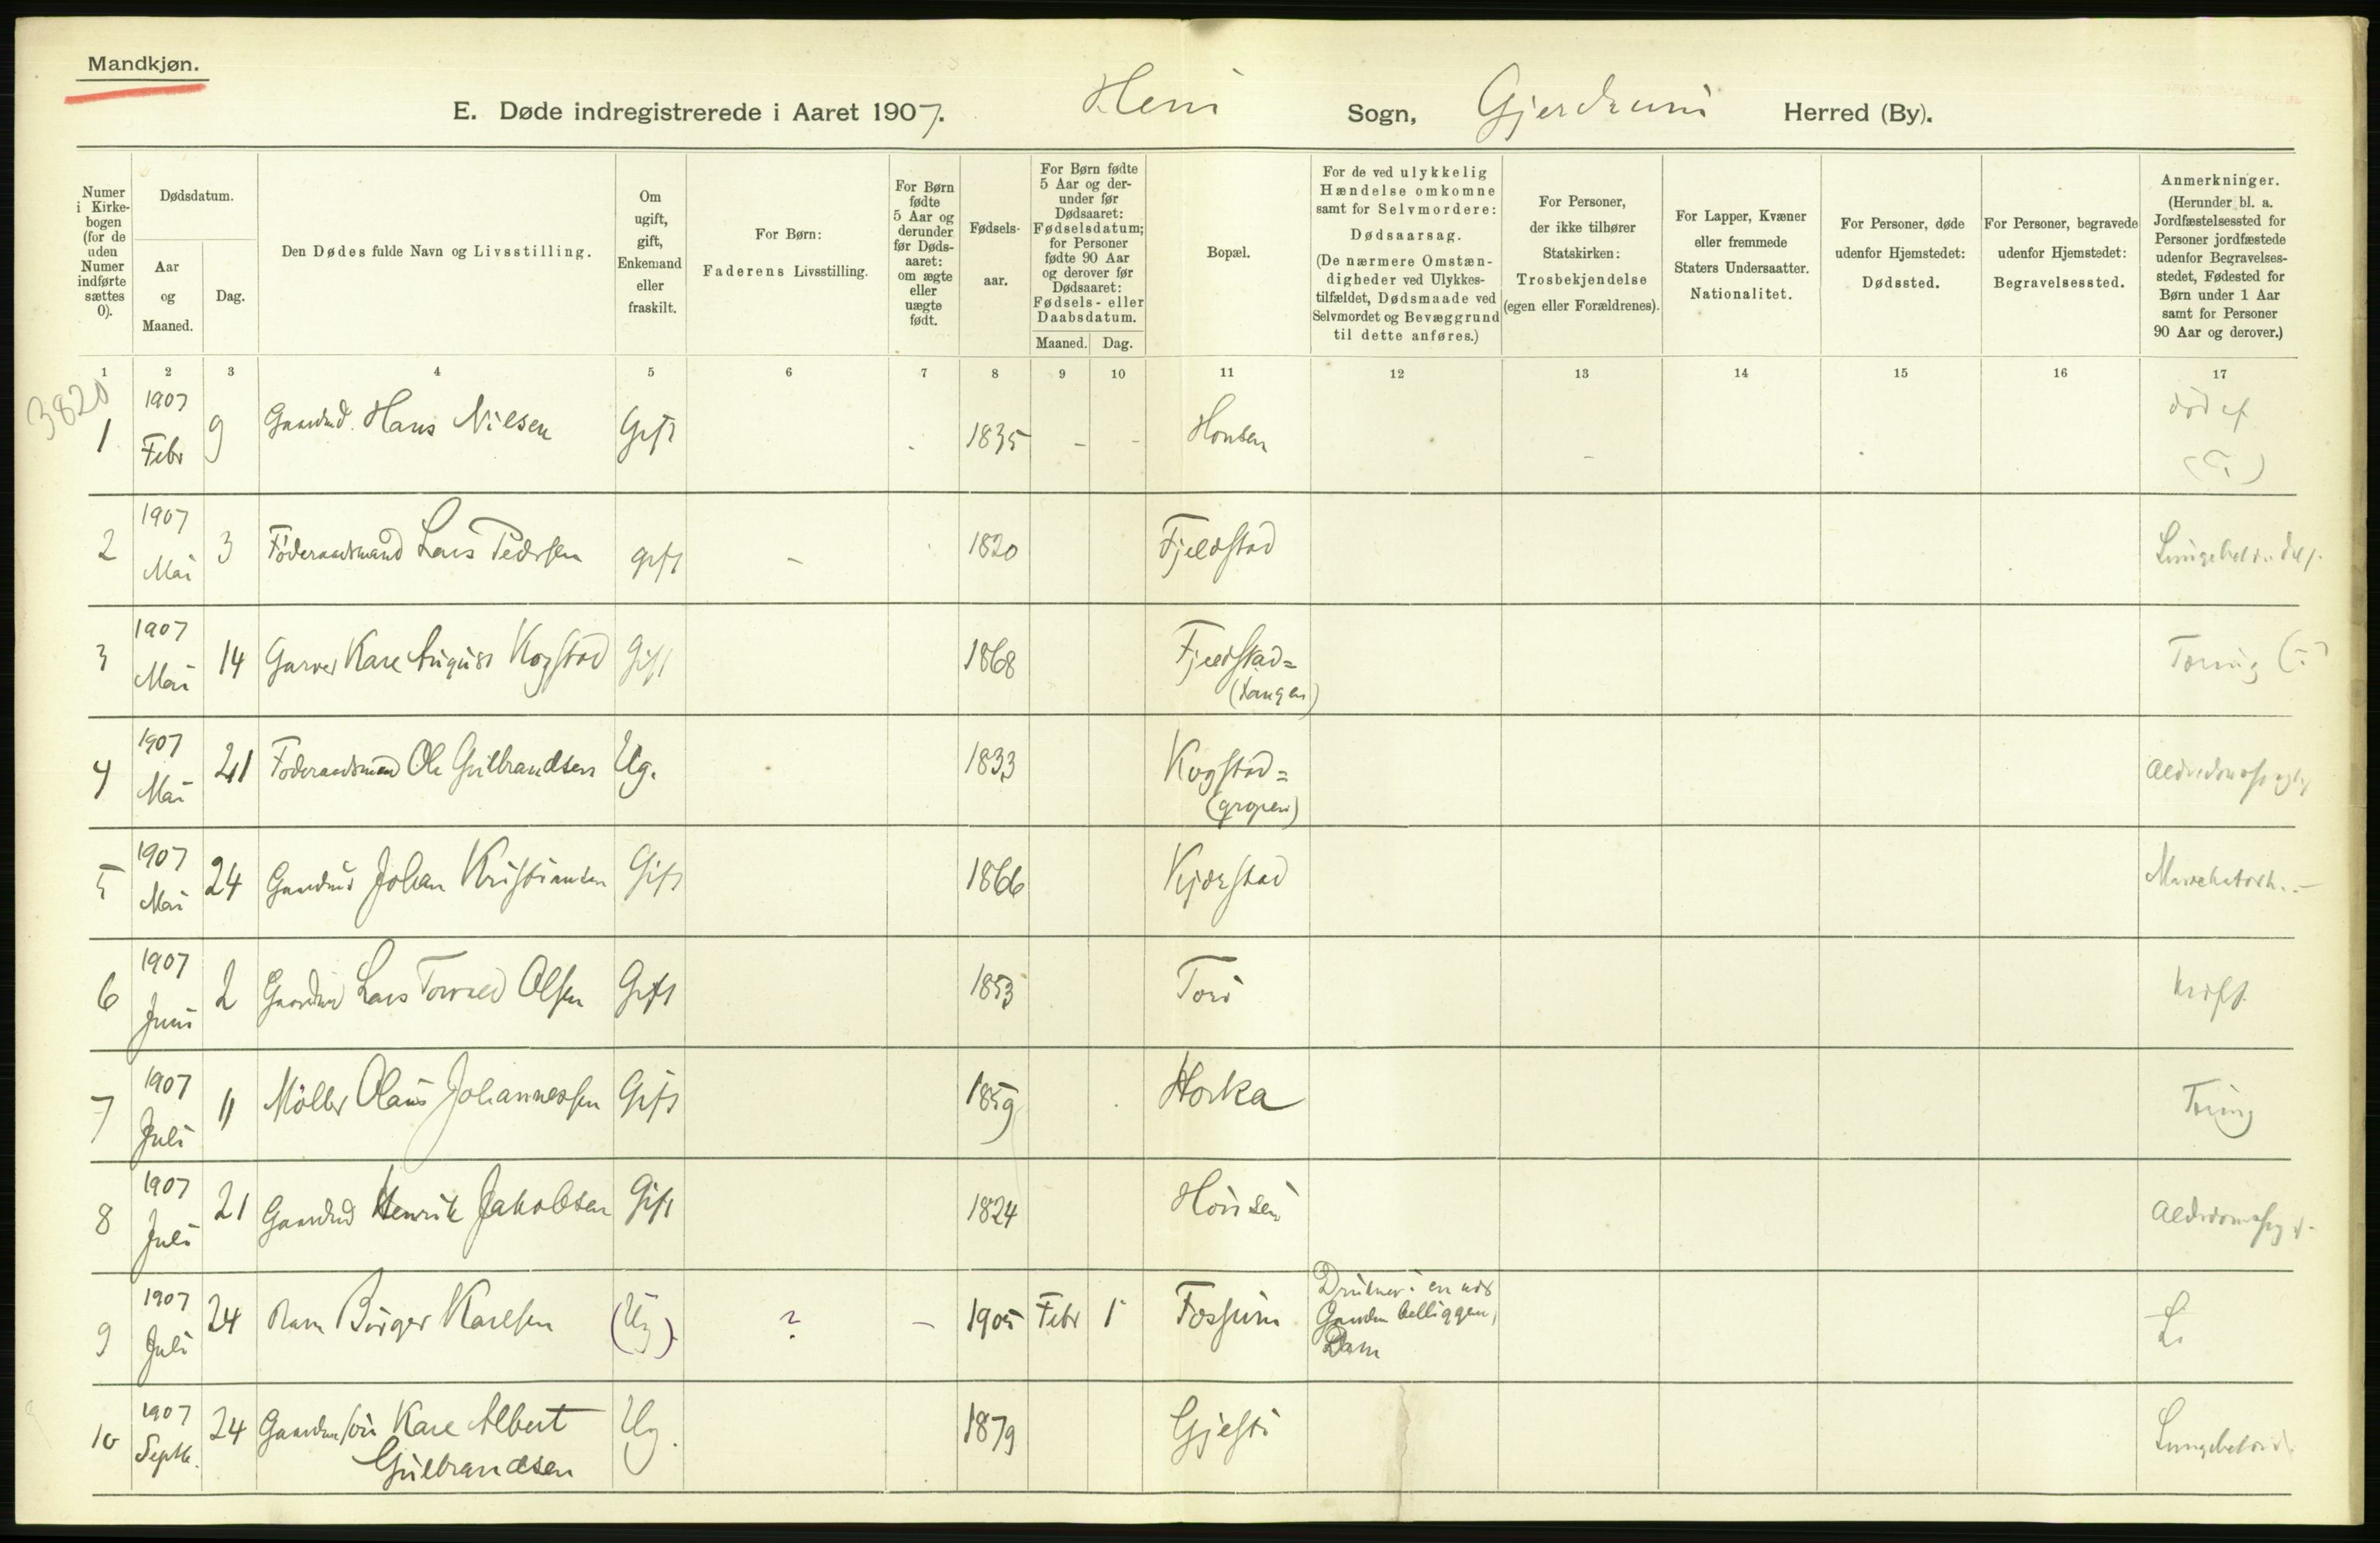 Mandkjøn.
E. Døde indregistrerede i Aaret 1907. Heni Sogn, Gjerdrum Herred (By).
Numer i Kirkebogen (for de uden Numer indførte sættes 0).
Dødsdatum.
Aar og Maaned.
Dag.
Den Dødes fulde Navn og Livsstilling.
Om ugift, gift, Enkemand eller fraskilt.
For Børn:
Faderens Livsstilling.
For Børn fødte 5 Aar og derunder før Dødsaaret: om ægte eller uægte født.
Fødselsaar.
For Børn fødte 5 Aar og derunder før Dødsaaret: Fødselsdatum; for Personer fødte 90 Aar og derover før Dødsaaret: Fødsels- eller Daabsdatum.
Maaned. Dag.
Bopæl.
For de ved ulykkelig Hændelse omkomne samt for Selvmordere: Dødsaarsag.
(De nærmere Omstændigheder ved Ulykkestilfældet, Dødsmaade ved Selvmordet og Bevæggrund til dette anføres.)
For Personer, der ikke tilhører Statskirken: Trosbekjendelse (egen eller Forældrenes).
For Lapper, Kvæner eller fremmede Staters Undersaatter. Nationalitet.
For Personer, døde udenfor Hjemstedet: Dødssted.
For Personer, begravede udenfor Hjemstedet: Begravelsessted.
Anmerkninger.
(Herunder bl. a. Jordfæstelsessted for Personer jordfæstede udenfor Begravelsesstedet, Fødested for Børn under 1 Aar samt for Personer 90 Aar og derover.)
1 2 3 4 5 6 7 8 9 10 11 12 13 14 15 16 17
3820
1 1907 Febr 9 Gaardmd. Hans Nilsen Gift - 1835 - - Honsen - død af
2 1907 Mai 3 Föderaadsmand Lars Pedersen gift - 1820 Fjeldstad
3 1907 Mai 14 Garver Karl August Kogstad Gift 1868 Fjeldstad= (tangen) Tæring
4 1907 Mai 21 Föderaadsmand Ole Gulbrandsen Ug. 1833 Kogstad= (gropen)
5 1907 Mai 24 Gaardmd Johan Kristiansen Gift 1866 Kjærstad
6 1907 Juni 2 Gaardmd Lars Torvald Olsen Gift 1853 Kræft
7 1907 Juli 11 Möller Olaus Johannessen Gift 1859 Horka Tæring
8 1907 Juli 21 Gaardmd Henrik Jakobsen Gift 1824 Hönsen
9 1907 Juli 24 Barn Birger Karlsen (Ug) ? - 1905 Febr 1 Fossum Druknet i en ved Gaarden belliggen, Dam
10 1907 Septb. 24 Gaardm.sön Karl Albert Gulbrandsen Ug. 1879 Gjesti